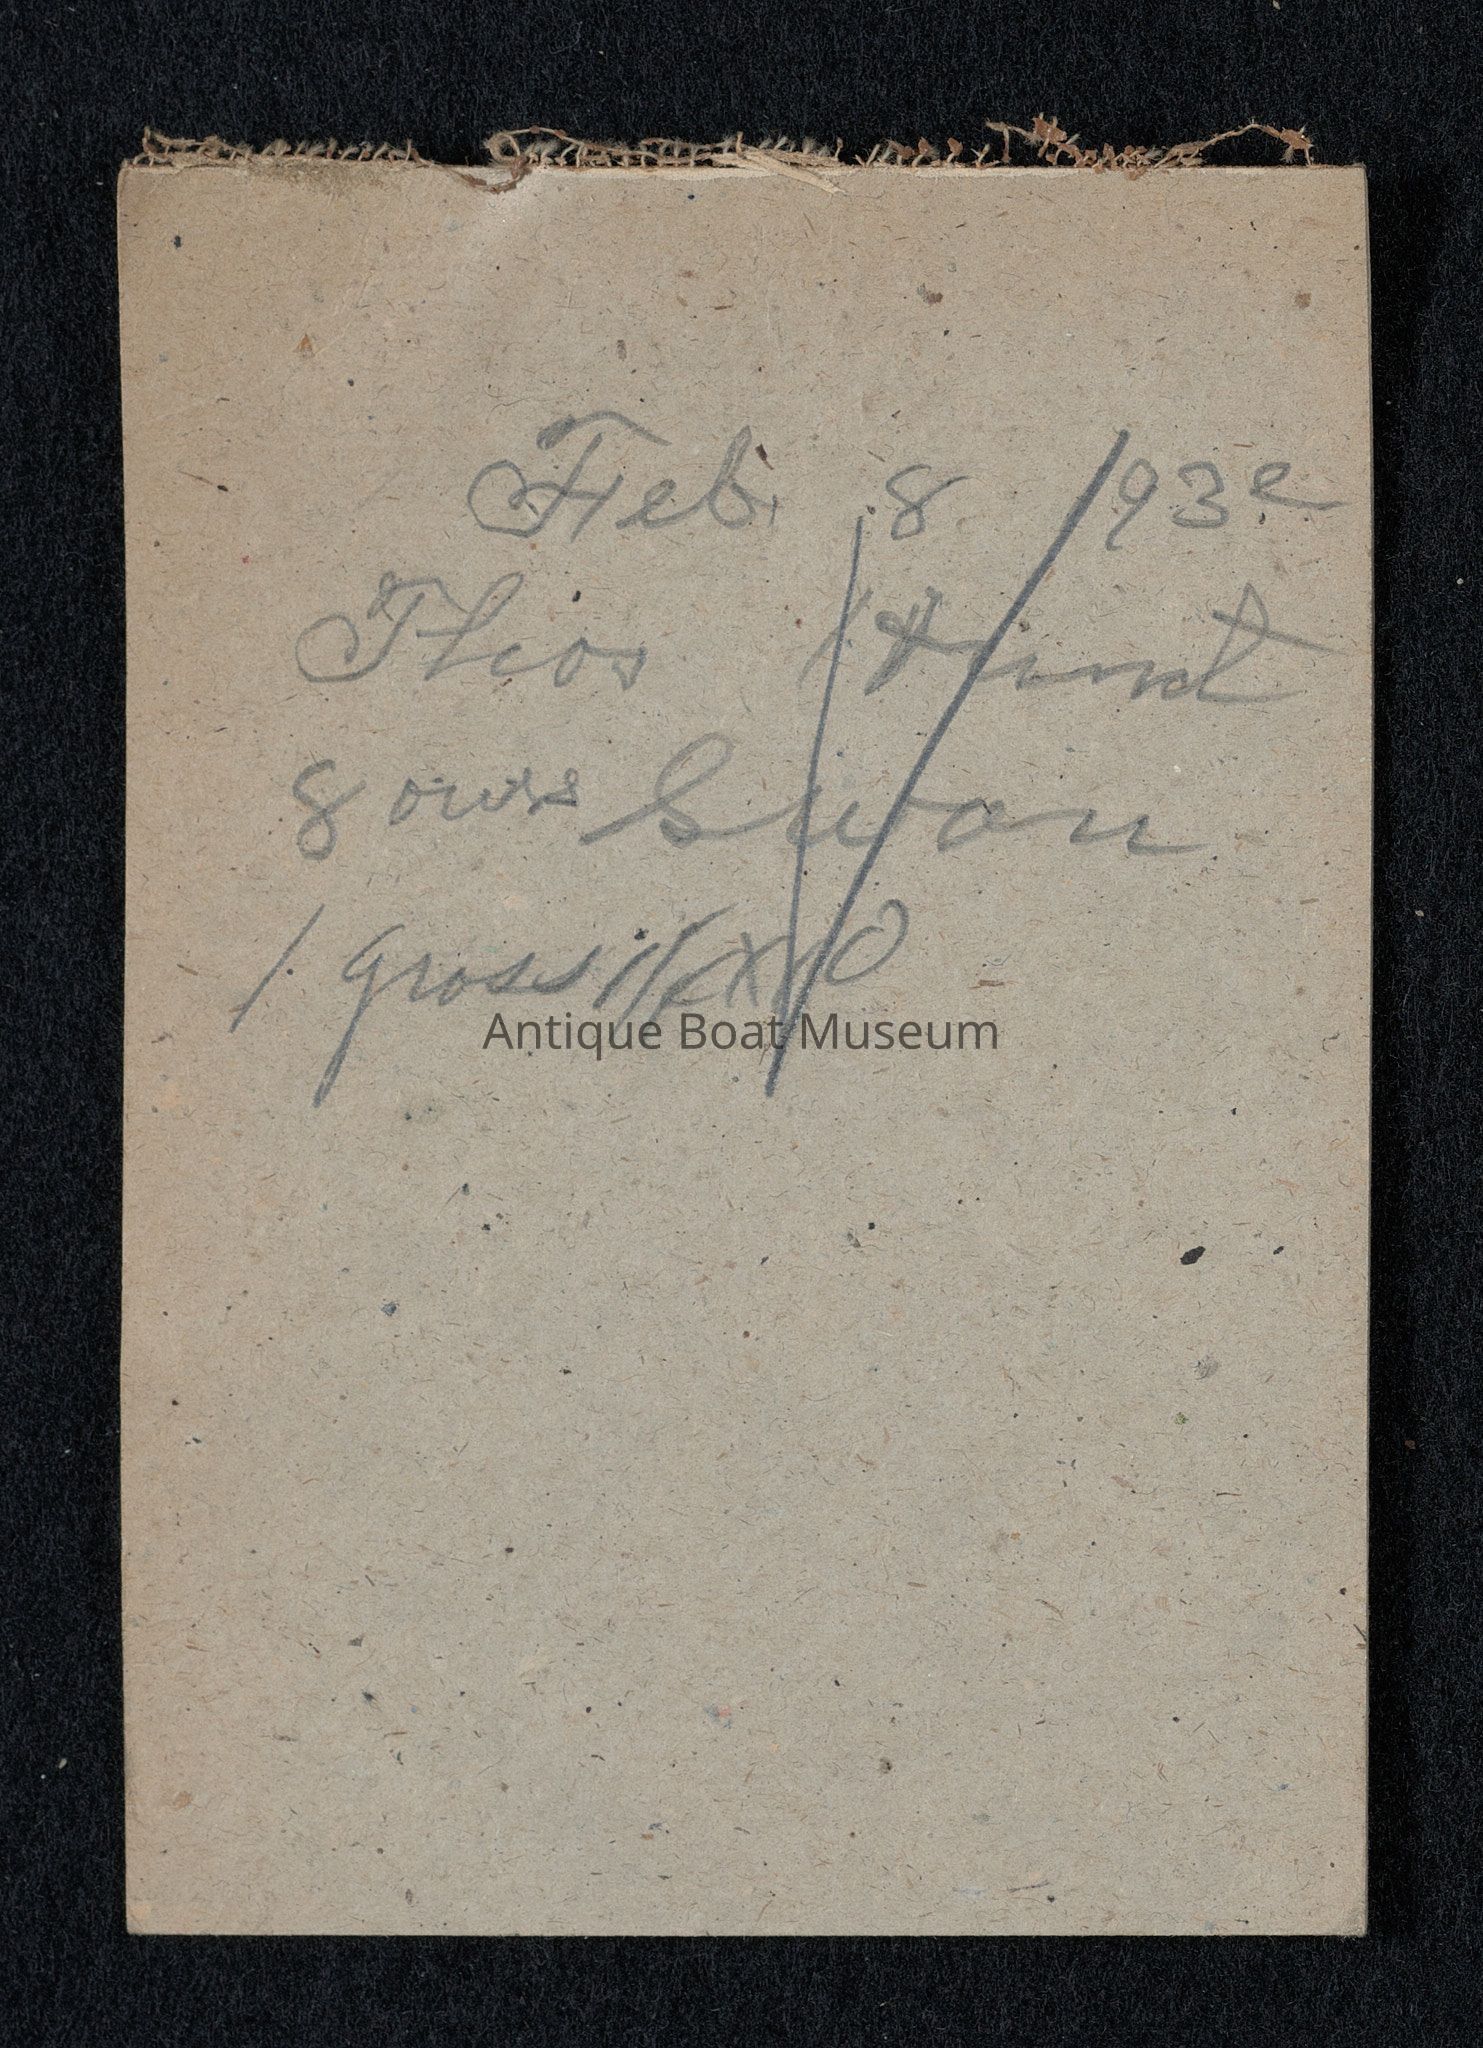 Feb. 8 1932
Thos Hunt
8 ours Swan
1 Gross 1 1/2 X 10
Antique Boat Museum